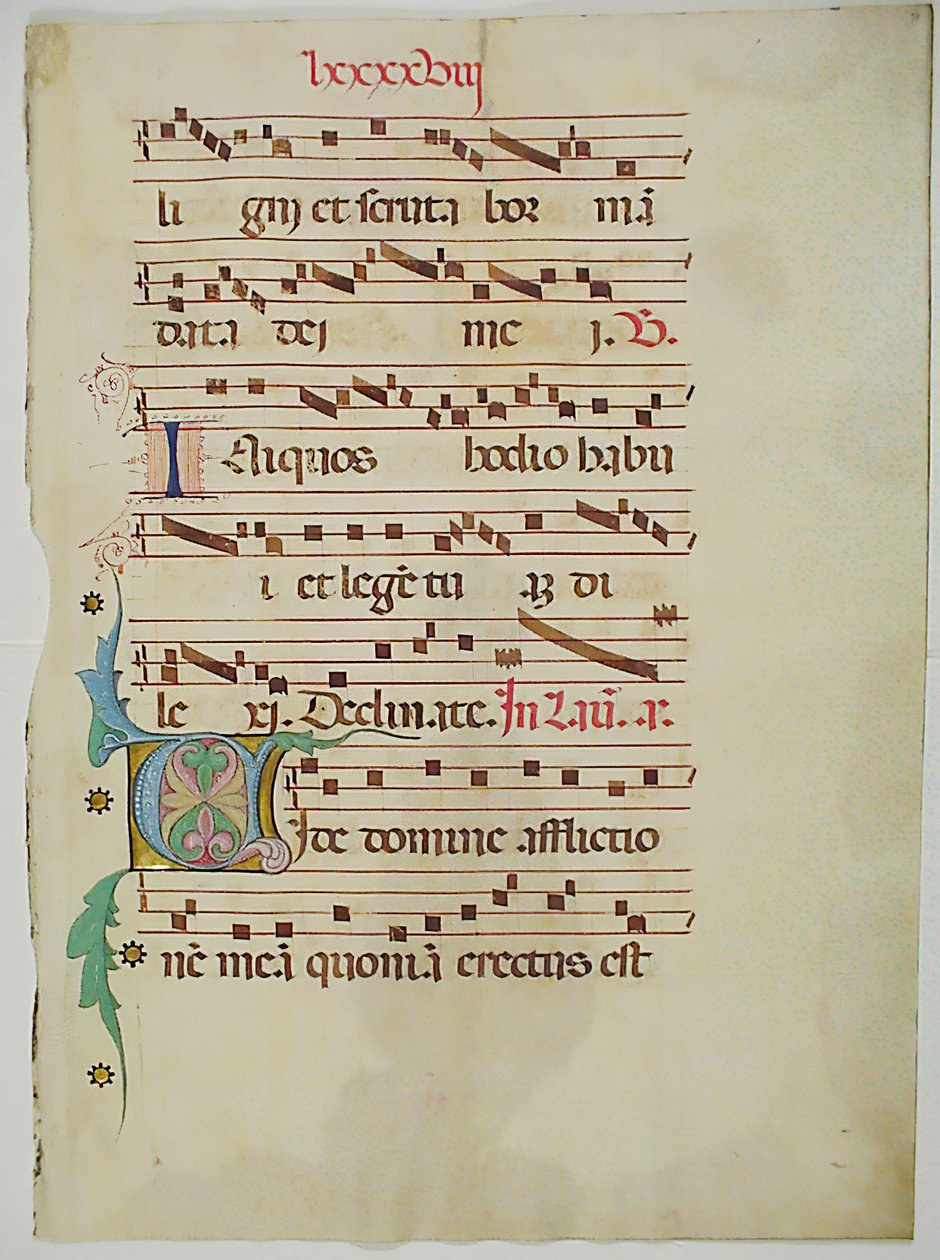 lxxxxviii
li gni et scruta bor mā
data dei me i. V.
Iniquos hodio habu
i et legē tu aȝ di
le xi. Declinate. In Laū. a.
Vide domine afflictio
nē meā quoniā erectus est